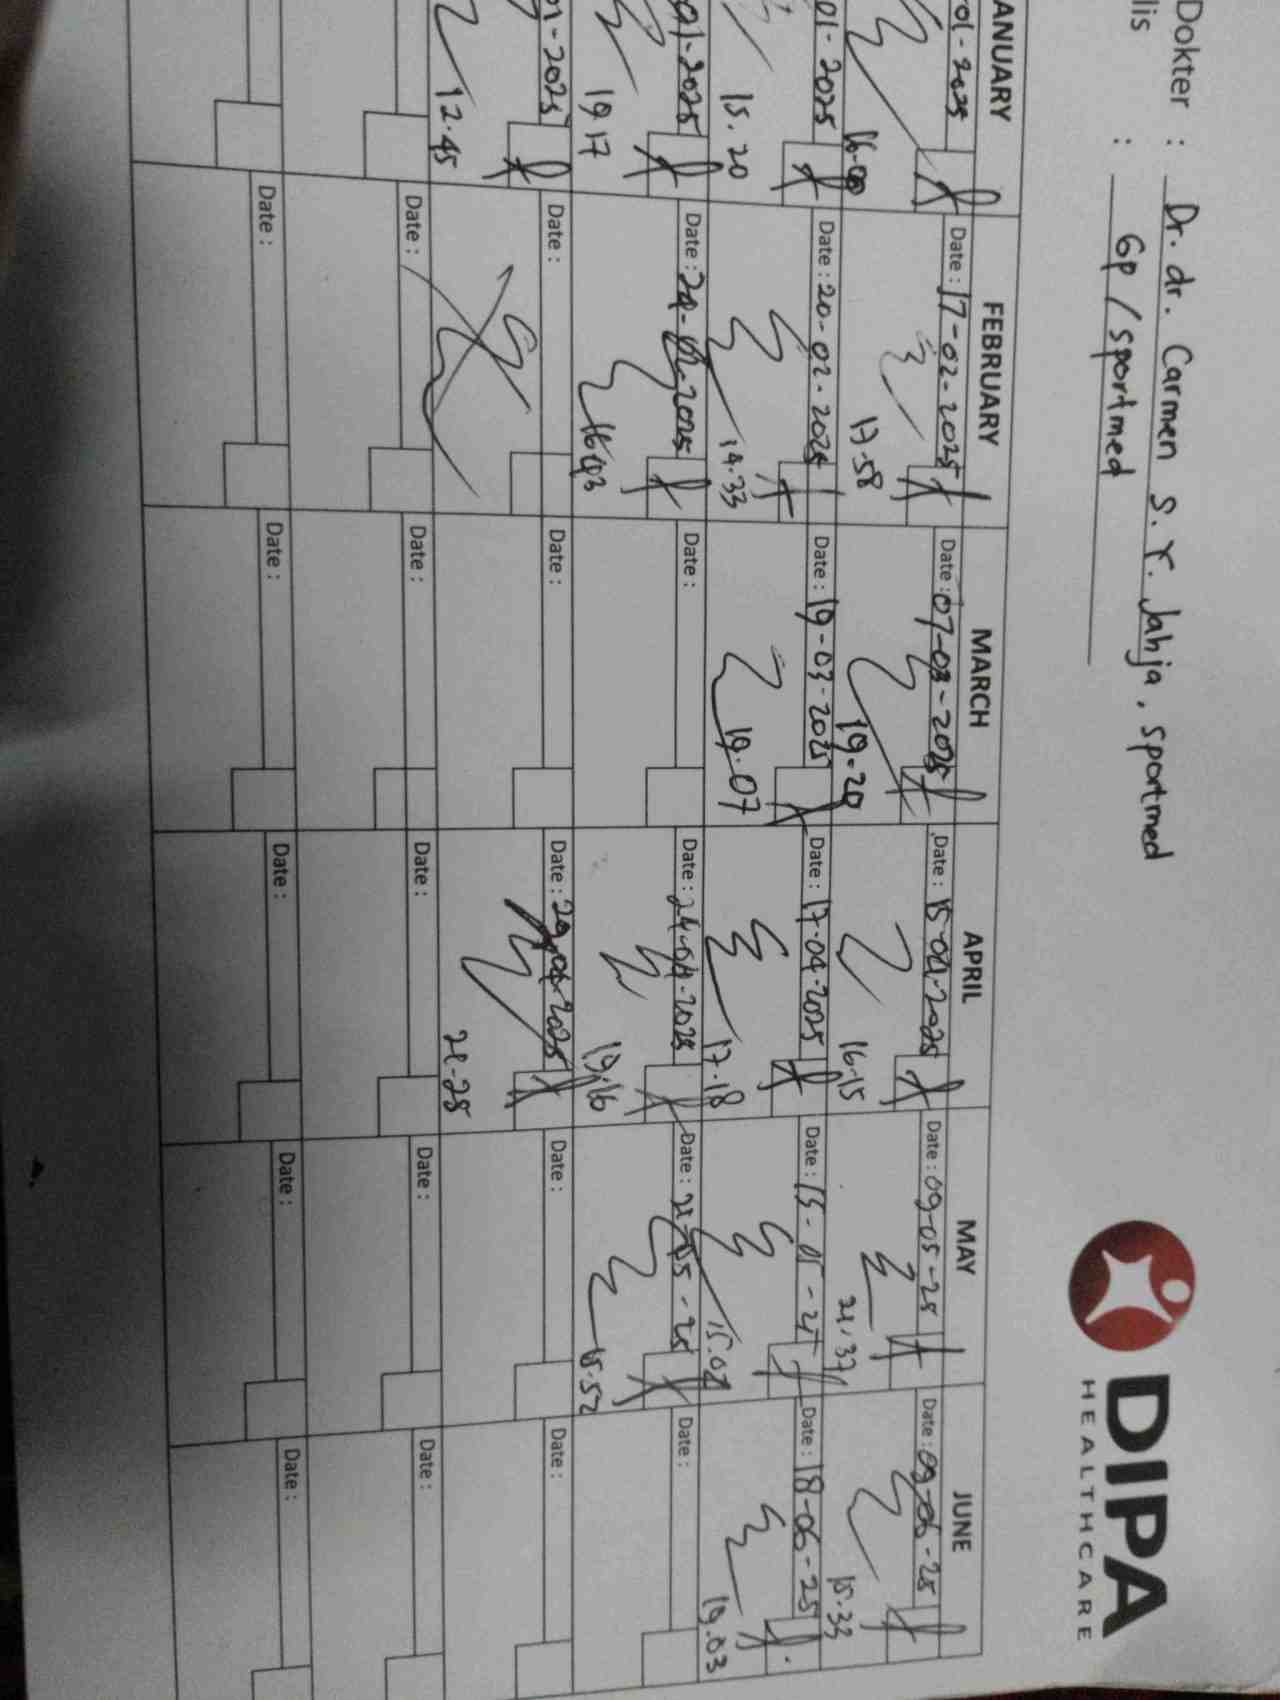 Dokter : Dr. dr. Carmen S. Y. Jahja, sportmed
lis : Gp / sportmed
DIPA
HEALTHCARE
ANUARY FEBRUARY MARCH APRIL MAY JUNE
01-2025 Date : 17-02-2025 Date : 07-03-2025 Date : 15-04-2025 Date : 09-05-25 Date : 09-06-25
16.00 17.58 19.20 16.15 21.37 15.33
01-2025 Date : 20-02-2025 Date : 19-03-2025 Date : 17-04-2025 Date : 15-05-25 Date : 18-06-25
15.20 14.33 19.07 17.18 15.07 19.03
01-2025 Date : 24-02-2025 Date : Date : 24-04-2025 Date : 21-05-25 Date :
19.17 16.03 19.16 15.52
01-2025 Date : Date : Date : 29-04-2025 Date : Date :
12.45 21.28
Date : Date : Date : Date : Date :
Date : Date : Date : Date : Date :